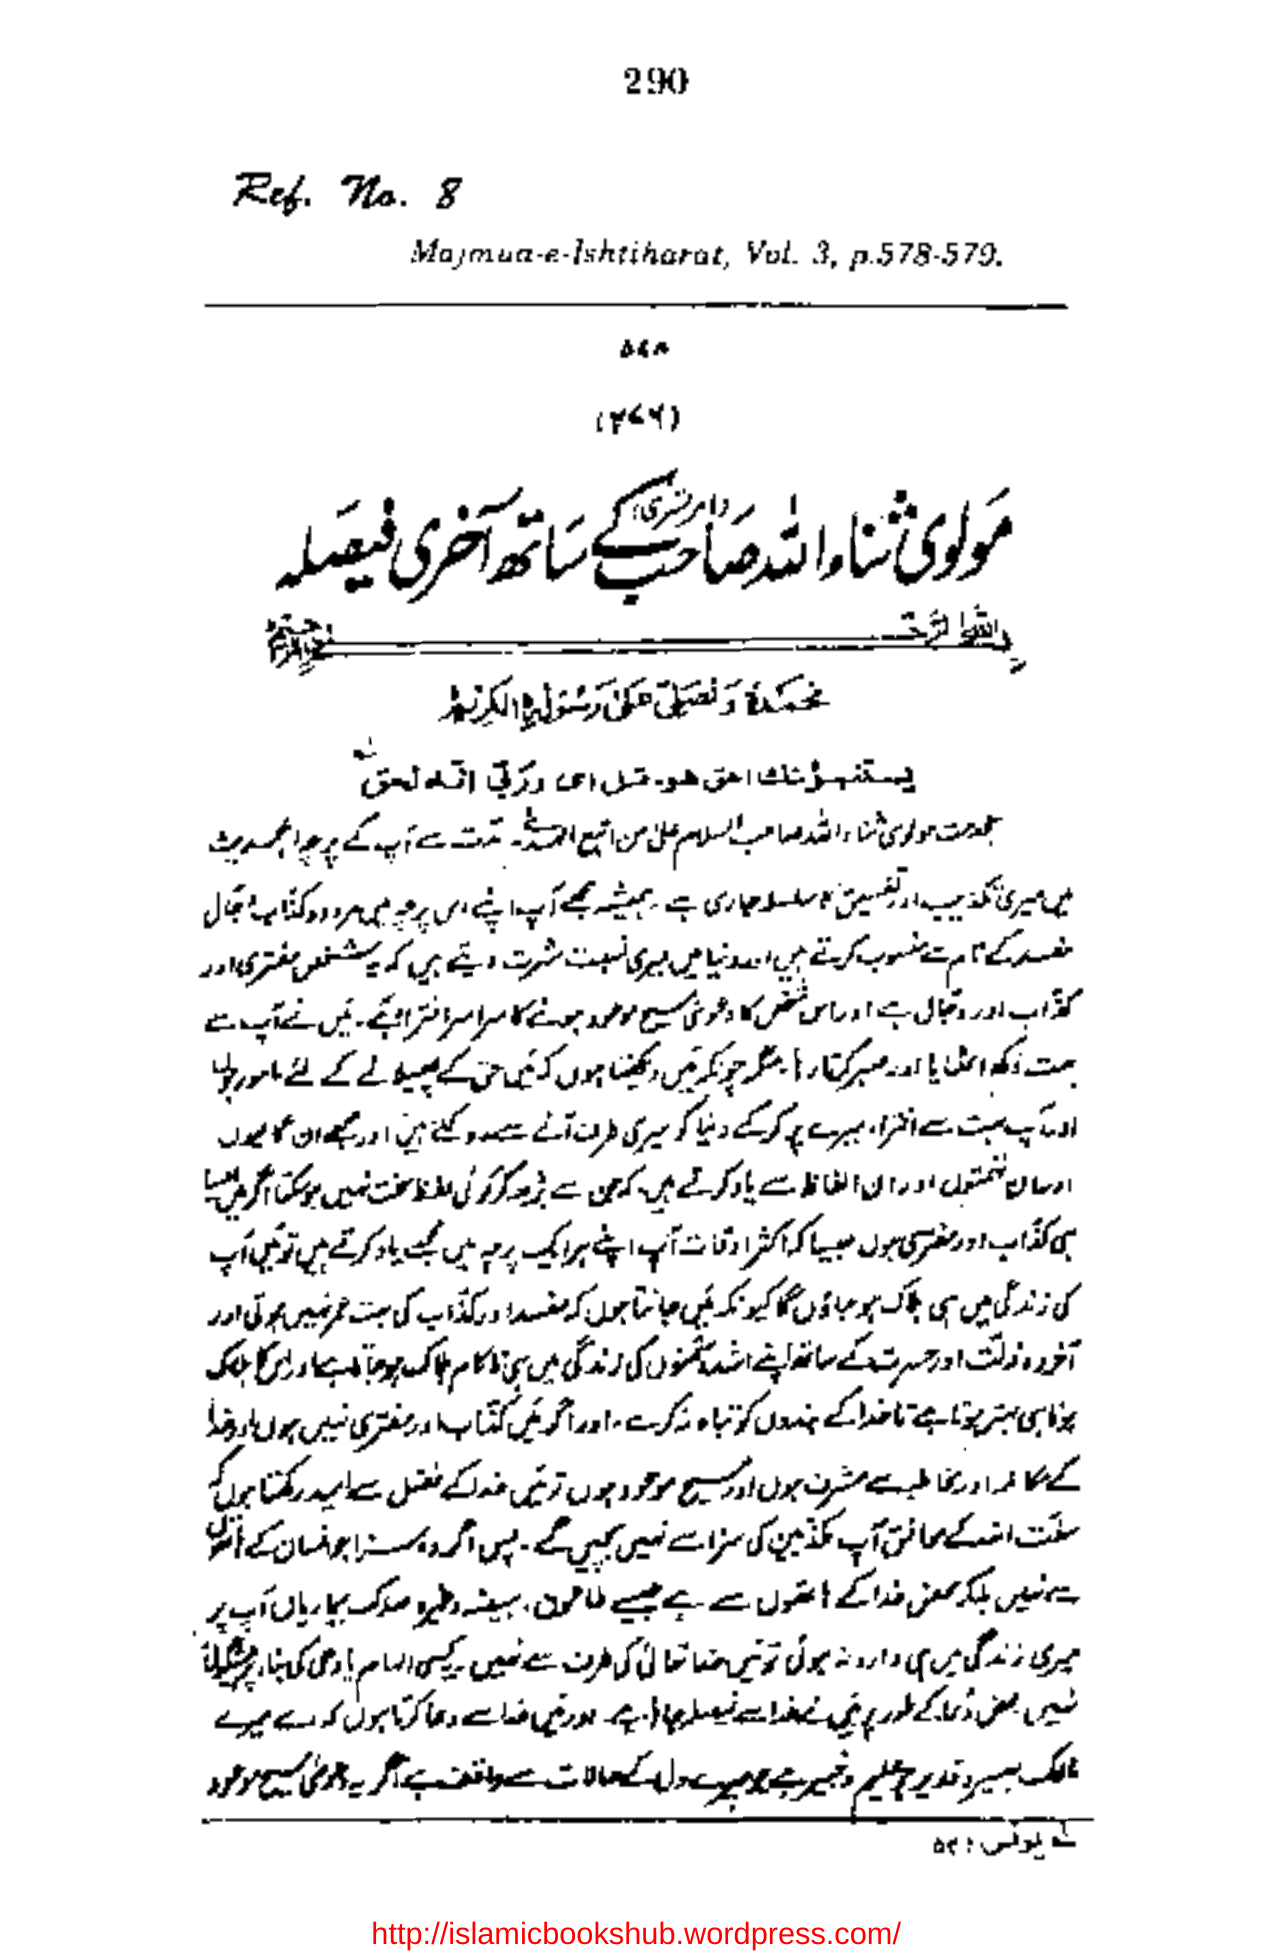 290
Ref. No. 8
Majmua-e-Ishtiharat, Vol. 3, p.578-579.
۵۷۸
(۲۷۶)
مولوی ثناء اللہ صاحب (امرتسری) کے ساتھ آخری فیصلہ
بسم اللہ الرحمن الرحیم
نحمدہ و نصلی علیٰ رسولہ الکریم
یستنبؤنک احق ھو۔ قل ای وربّی انہ لحق
بخدمت مولوی ثناء اللہ صاحب السلام علیٰ من اتبع الہدیٰ۔ مدت سے آپ کے پرچہ اہلحدیث
میں میری تکذیب اور تفسیق کا سلسلہ جاری ہے۔ ہمیشہ مجھے آپ اپنے اس پرچہ میں مردود کذاب دجال
مفسد کے نام سے منسوب کرتے ہیں اور دنیا میں میری نسبت شہرت دیتے ہیں کہ یہ شخص مفتری اور
کذّاب اور دجّال ہے اور اس شخص کا دعویٰ مسیح موعود ہونے کا سراسر افترا ہے۔ مَیں نے آپ سے
بہت دُکھ اٹھایا اور صبر کرتا رہا۔ مگر چونکہ مَیں دیکھتا ہوں کہ مَیں حق کے پھیلانے کے لئے مامور ہوں
اور آپ بہت سے افتراء میرے پر کر کے دنیا کو میری طرف آنے سے روکتے ہیں اور مجھے ان گالیوں
اور ان تہمتوں اور ان الفاظ سے یاد کرتے ہیں کہ جن سے بڑھ کر کوئی لفظ سخت نہیں ہو سکتا اگر مَیں ایسا
ہی کذّاب اور مفتری ہوں جیسا کہ اکثر اوقات آپ اپنے ہر ایک پرچہ میں مجھے یاد کرتے ہیں تو مَیں آپ
کی زندگی میں ہی ہلاک ہو جاؤں گا کیونکہ مَیں جانتا ہوں کہ مفسد اور کذّاب کی بہت عمر نہیں ہوتی اور
آخر وہ ذلّت اور حسرت کے ساتھ اپنے اشد دشمنوں کی زندگی میں ہی ناکام ہلاک ہو جاتا ہے اور اس کا ہلاک
ہونا ہی بہتر ہوتا ہے تا خدا کے بندوں کو تباہ نہ کرے۔ اور اگر مَیں کذّاب اور مفتری نہیں ہوں اور خدا
کے مکالمہ اور مخاطبہ سے مشرف ہوں اور مسیح موعود ہوں تو مَیں خدا کے فضل سے امید رکھتا ہوں کہ
سنّت اللہ کے موافق آپ مکذّبین کی سزا سے نہیں بچیں گے۔ پس اگر وہ سزا جو انسان کے ہاتھوں
سے نہیں بلکہ محض خدا کے ہاتھوں سے ہے جیسے طاعون، ہیضہ وغیرہ مہلک بیماریاں آپ پر
میری زندگی میں ہی وارد نہ ہوئی تو مَیں خدا تعالیٰ کی طرف سے نہیں۔ یہ کسی الہام یا وحی کی بناء پر پیشگوئی
نہیں محض دُعا کے طور پر مَیں نے خدا سے فیصلہ چاہا ہے۔ اور مَیں خدا سے دعا کرتا ہوں کہ اے میرے
مالک بصیر و قدیر جو علیم و خبیر ہے جو میرے دل کے حالات سے واقف ہے اگر یہ دعویٰ مسیح موعود
یونس : ۵۴
http://islamicbookshub.wordpress.com/